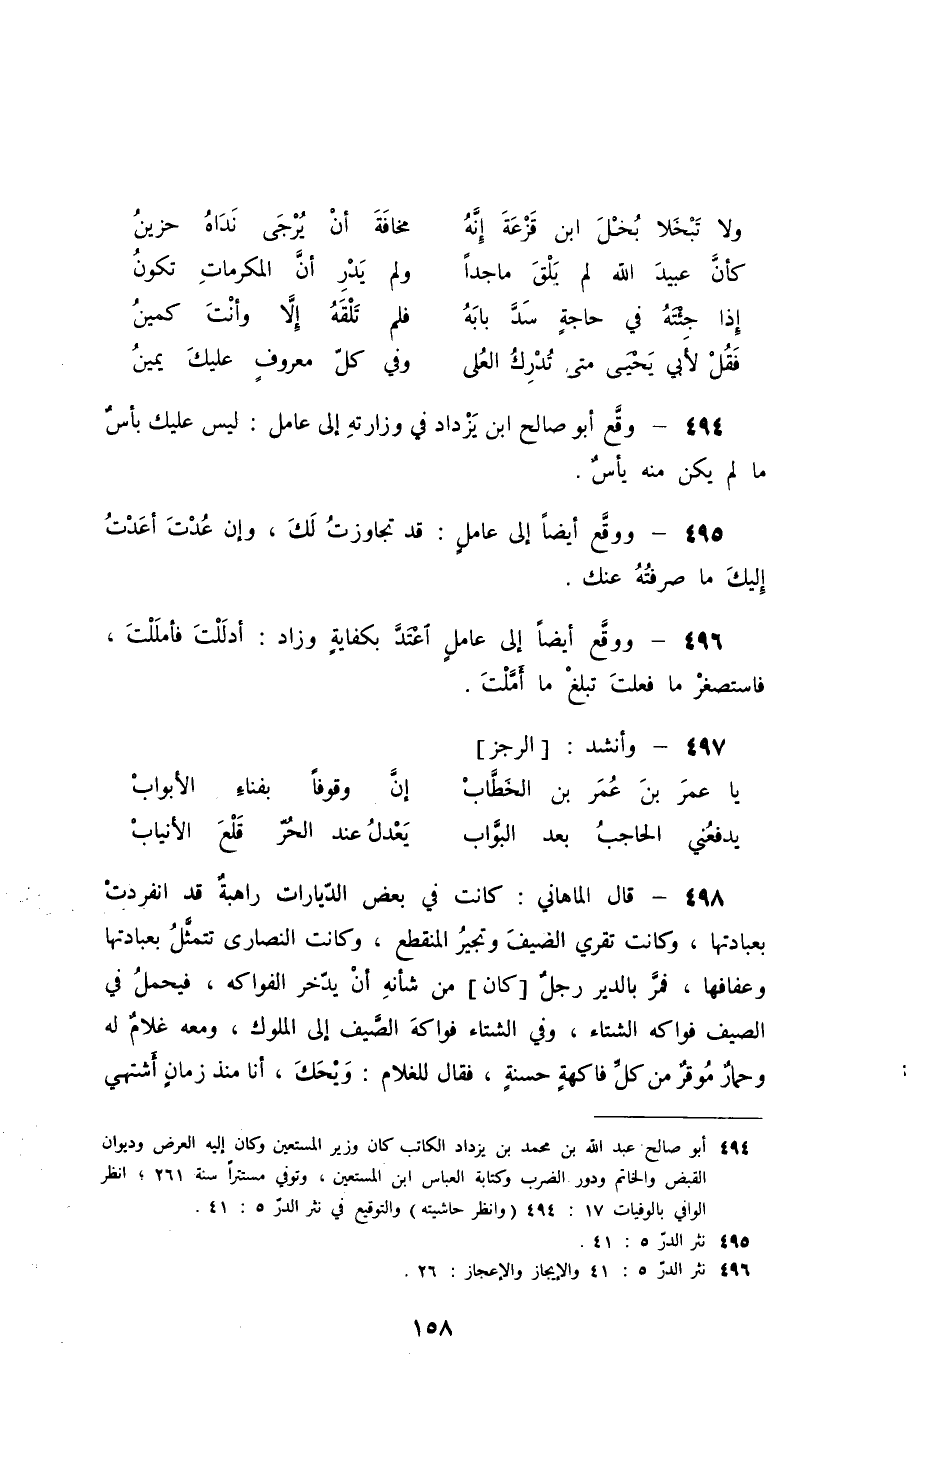 ولا تَبْخَلا بُخْلَ ابن قَزْعَةَ إنَّهُ مخافَةَ أنْ يُرْجَى نَدَاهُ حزينُ
كأنَّ عبيدَ الله لم يَلْقَ ماجداً ولم يَدْرِ أنَّ المكرماتِ تكونُ
إذا جِئتَهُ في حاجةٍ سَدَّ بابَهُ فلم تَلْقَهُ إلَّا وأنْتَ كمينُ
فَقُلْ لأبي يَحْيَى متى تُدْرِكُ العُلى وفي كلّ معروفٍ عليكَ يمينُ
٤٩٤ – وقَّع أبو صالح ابن يَزْداد في وزارتهِ إلى عامل : ليس عليك بأسٌ
ما لم يكن منه يأسٌ .
٤٩٥ – ووقَّع أيضاً إلى عاملٍ : قد تجاوزتُ لَكَ ، وإن عُدْتَ أعَدْتُ
إليكَ ما صرفتُهُ عنك .
٤٩٦ – ووقَّع أيضاً إلى عاملٍ اعْتَدَّ بكفايةٍ وزاد : أدلَلْتَ فأملَلْتَ ،
فاستصغرْ ما فعلتَ تبلغْ ما أَمَّلْتَ .
٤٩٧ – وأنشد : [ الرجز ]
يا عمرَ بنَ عُمَرَ بن الخَطَّابْ إنَّ وقوفاً بفناءِ الأبوابْ
يدفعُني الحاجبُ بعد البوَّاب يَعْدلُ عند الحُرّ قَلْعَ الأنيابْ
٤٩٨ – قال الماهاني : كانت في بعض الدّيارات راهبةٌ قد انفردتْ
بعبادتها ، وكانت تقري الضيفَ وتجيرُ المنقطع ، وكانت النصارى تتمثَّلُ بعبادتها
وعفافها ، فمرَّ بالدير رجلٌ [كان] من شأنهِ أنْ يدّخر الفواكه ، فيحملُ في
الصيف فواكه الشتاء ، وفي الشتاء فواكهَ الصَّيف إلى الملوك ، ومعه غلامٌ له
وحمارٌ مُوقرٌ من كلِّ فاكهةٍ حسنةٍ ، فقال للغلام : وَيْحَكَ ، أنا منذ زمانٍ أَشتهي
٤٩٤ أبو صالح عبد الله بن محمد بن يزداد الكاتب كان وزير المستعين وكان إليه العرض وديوان
القبض والخاتم ودور الضرب وكتابة العباس ابن المستعين ، وتوفي مستتراً سنة ٢٦١ ؛ انظر
الوافي بالوفيات ١٧ : ٤٩٤ (وانظر حاشيته) والتوقيع في نثر الدرّ ٥ : ٤١ .
٤٩٥ نثر الدرّ ٥ : ٤١ .
٤٩٦ نثر الدرّ ٥ : ٤١ والإيجاز والإعجاز : ٢٦ .
١٥٨